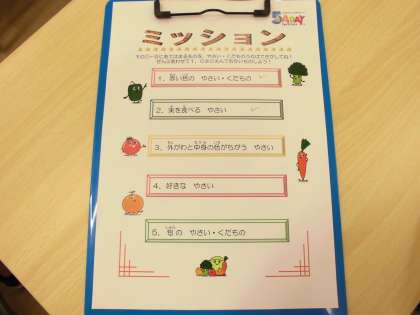 5 A DAY
ミッション
1. 赤い色の やさい・くだもの
2. 実を食べる やさい
3. 外がわと中身の色がちがう やさい
4. 好きな やさい
5. 旬の やさい・くだもの